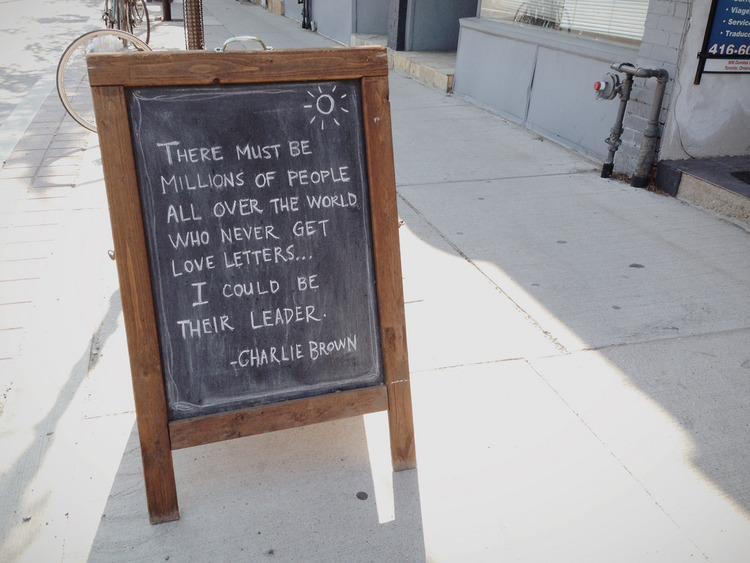 THERE MUST BE
MILLIONS OF PEOPLE
ALL OVER THE WORLD
WHO NEVER GET
LOVE LETTERS...
I COULD BE
THEIR LEADER.
-CHARLIE BROWN
416-60